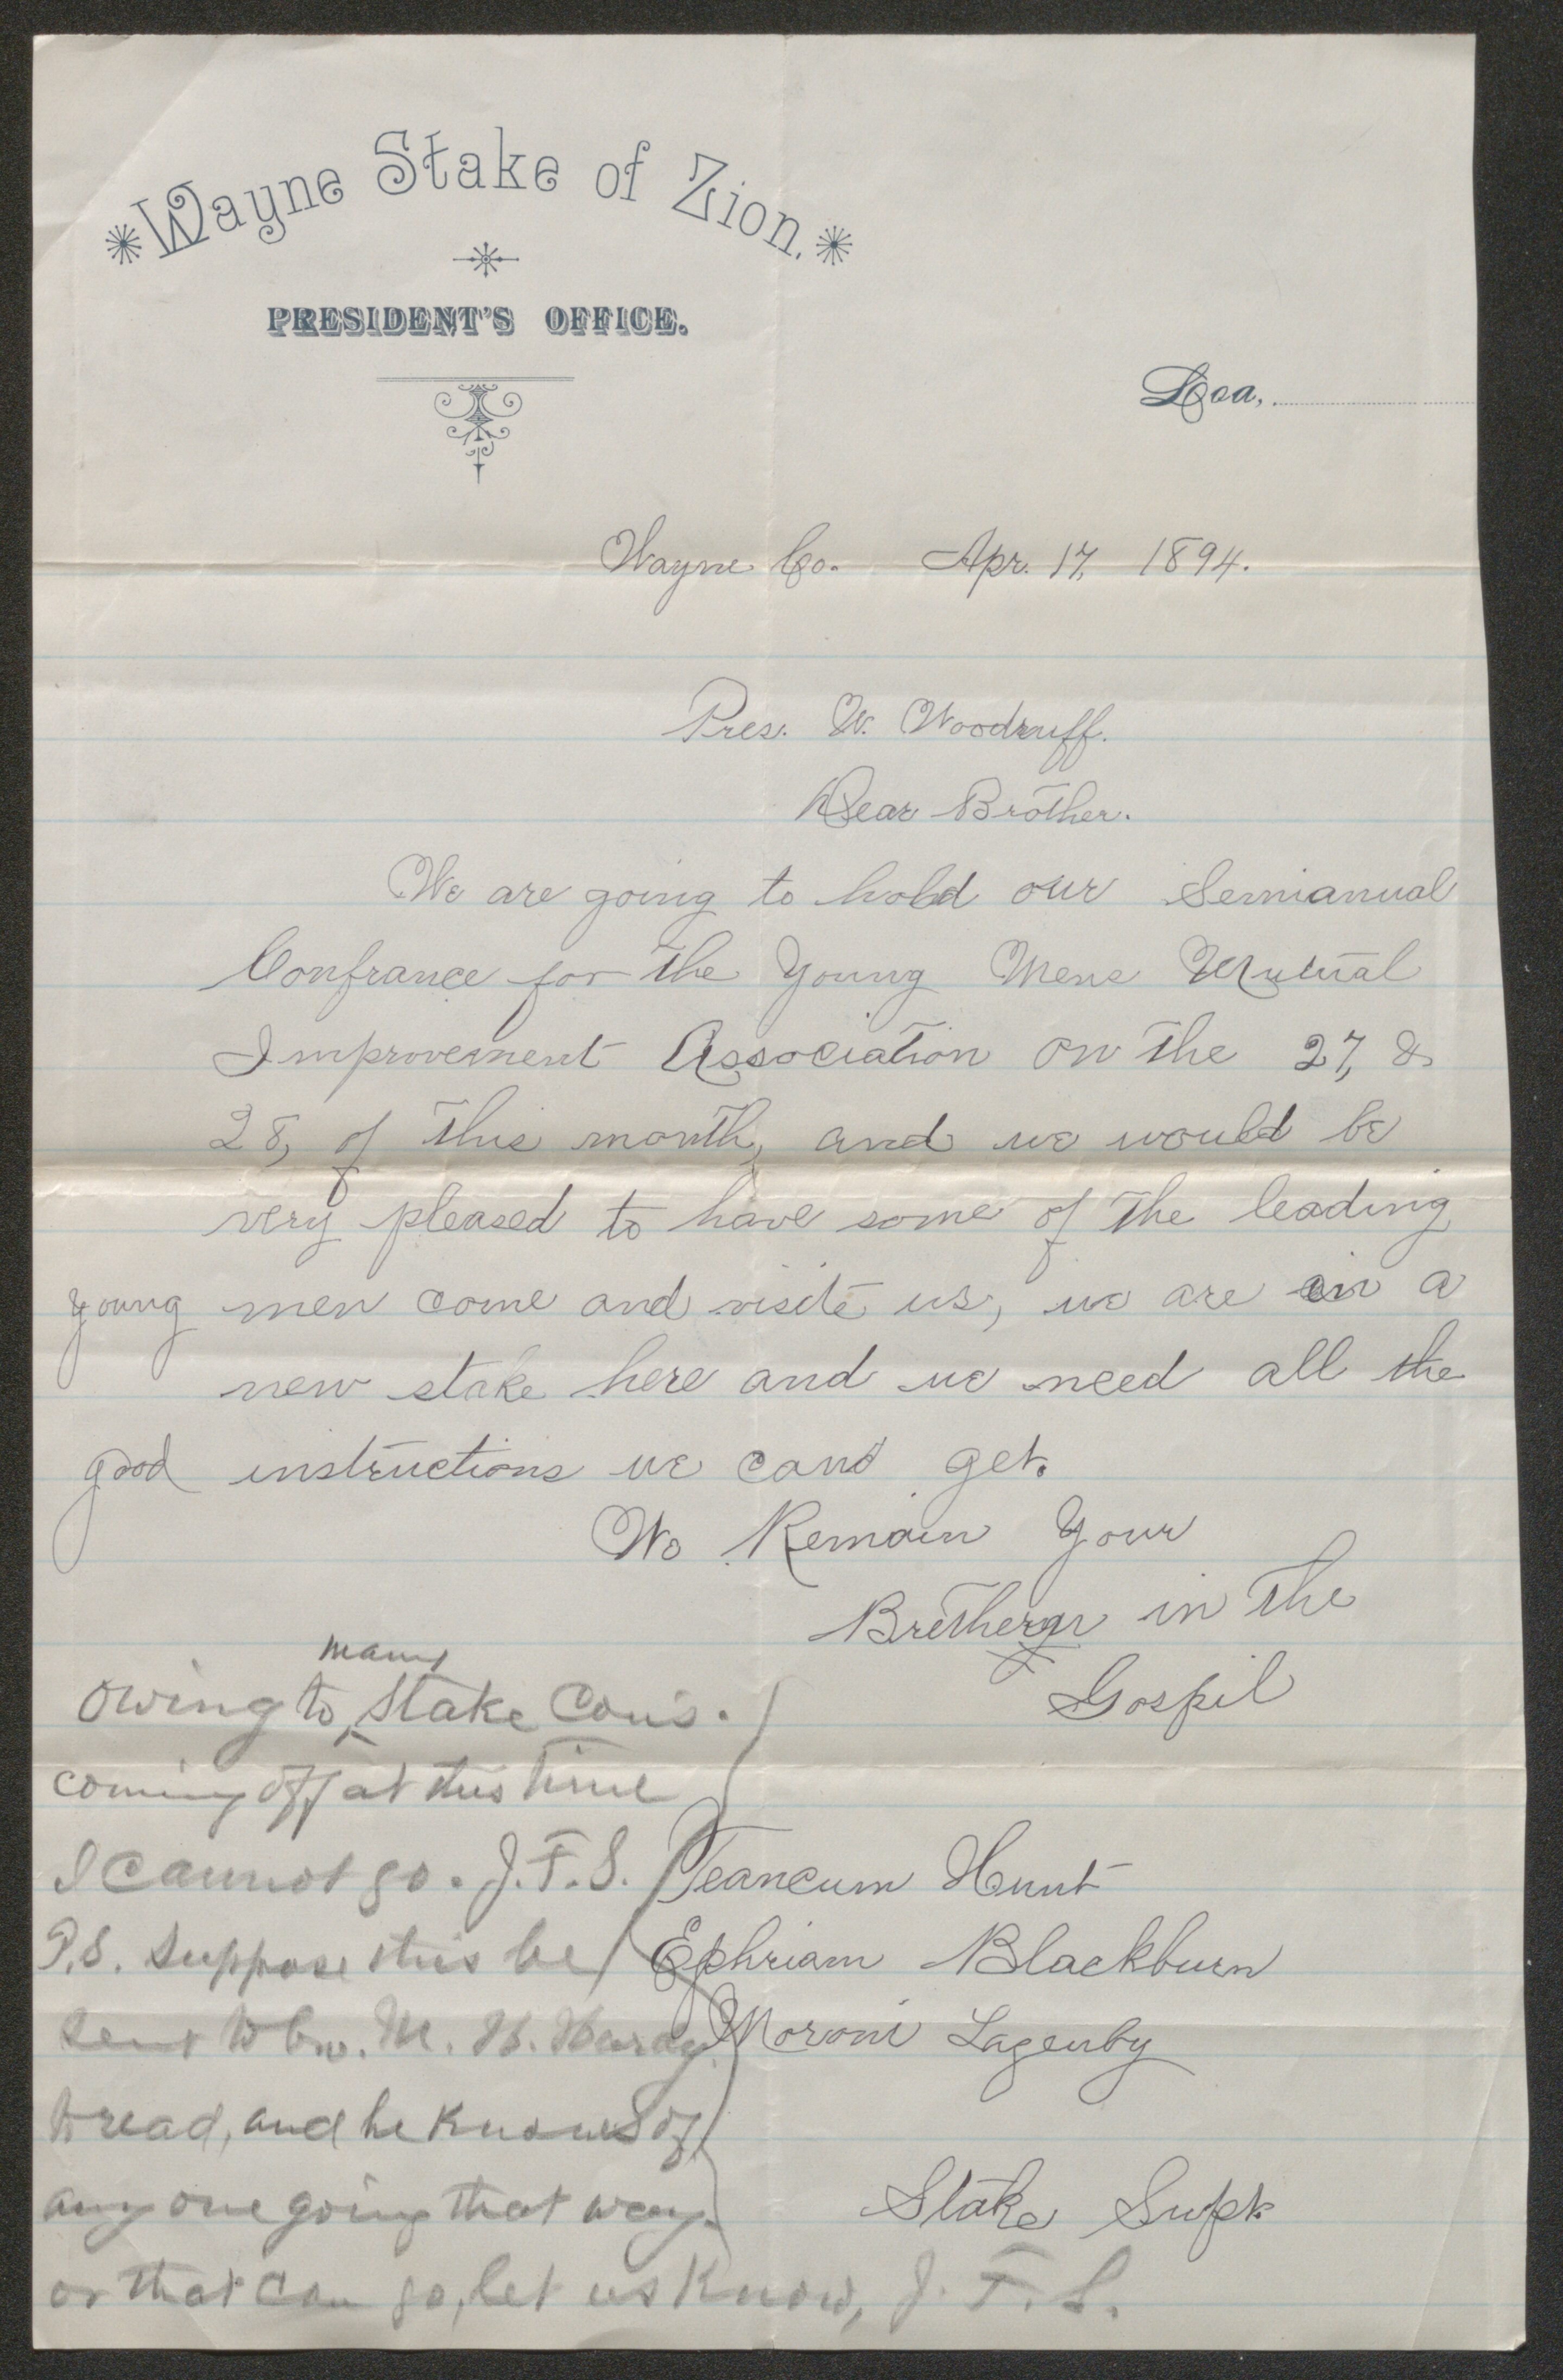 Wayne Stake of Zion.
PRESIDENT'S OFFICE.
Loa,
Wayne Co. Apr. 17, 1894.
Pres. W. Woodruff.
Dear Brother.
We are going to hold our Semianual
Confrance for the Young Mens Mutual
Improvement Association on the 27, &
28, of this month, and we would be
very pleased to have some of the leading
young men come and visite us, we are in a
new stake here and we need all the
good instructions we can get.
We Remain Your
Bretheren in the
Gospil
Teancum Hunt
Ephriam Blackburn
Moroni Lazenby
Stake Supt.
many
Owing to ^ Stake Con's.
coming off at this time
I cannot go. J.F.S.
P.S. Suppose this be
sent to bro. M. H. Hardy
to read, and he knows of
any one going that way.
or that can go, let us know, J. F. S.